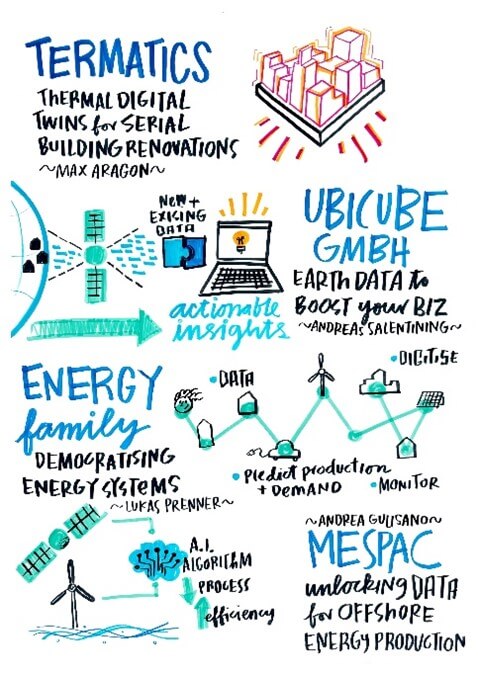 TERMATICS
THERMAL DIGITAL
TWINS for SERIAL
BUILDING RENOVATIONS
~MAX ARAGON~
NEW +
EXISING
DATA
actionable
insights
UBICUBE
GMBH
EARTH DATA to
BOOST your BIZ
~ANDREAS SALENTINING~
ENERGY
family
DEMOCRATISING
ENERGY SYSTEMS
~LUKAS PRENNER~
• DATA
• DIGITISE
• PREDICT PRODUCTION
+ DEMAND
• MONITOR
A.I.
ALGORITHM
PROCESS
efficiency
~ANDREA GULISANO~
MESPAC
unlocking DATA
for OFFSHORE
ENERGY PRODUCTION